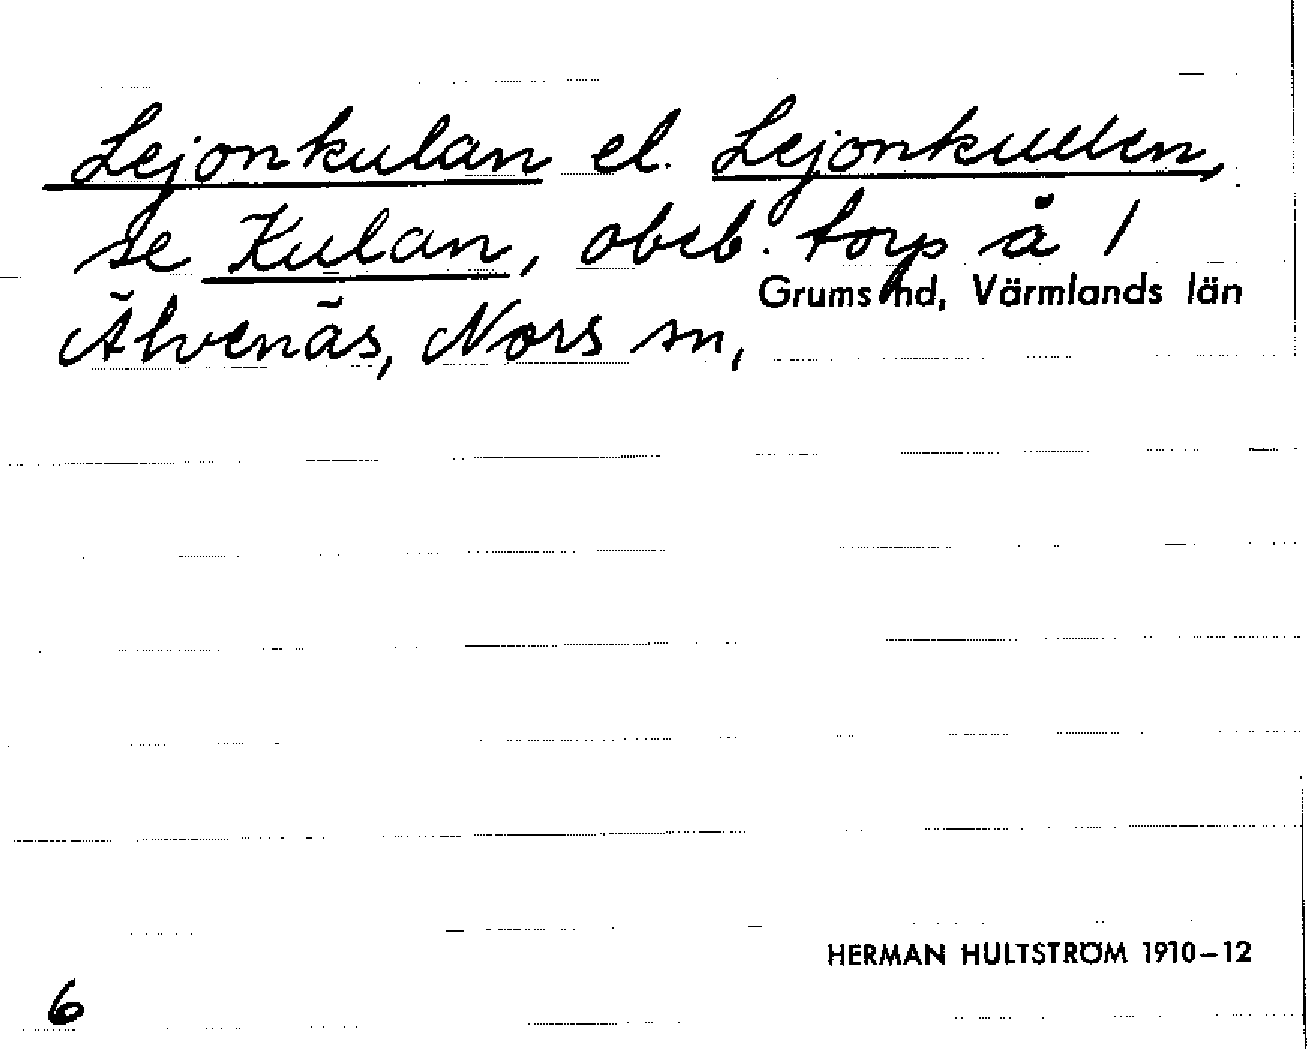 Lejonkulan el. Lejonkullen,
se Kulan, obeb. torp å 1
Älvenäs, Nors sn,
Grums hd, Värmlands län
HERMAN HULTSTRÖM 1910–12
6